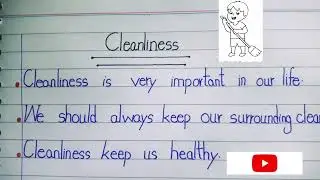 Cleanliness
Cleanliness is very important in our life.
We should always keep our surrounding clean
Cleanliness keep us healthy.